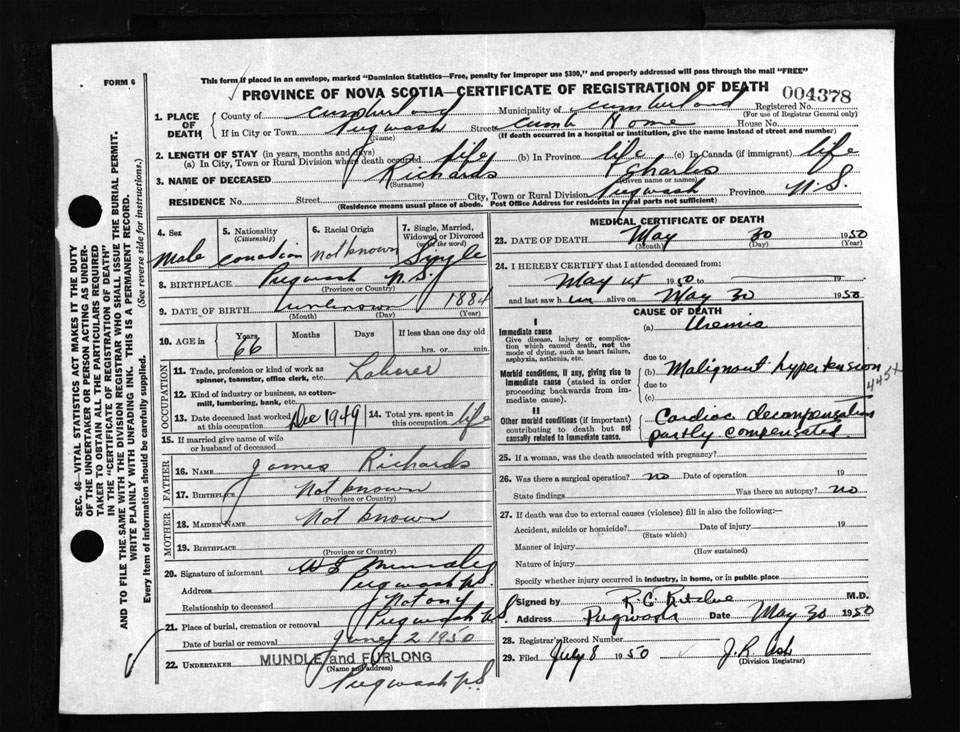 FORM 6
This form if placed in an envelope, marked "Dominion Statistics—Free, penalty for improper use $300," and properly addressed will pass through the mail "FREE"
PROVINCE OF NOVA SCOTIA—CERTIFICATE OF REGISTRATION OF DEATH
004378
Registered No.
(For use of Registrar General only)
1. PLACE OF DEATH
County of Cumberland Municipality of Cumberland
If in City or Town Pugwash Street Cumb Home House No.
(Name) (If death occurred in a hospital or institution, give the name instead of street and number)
2. LENGTH OF STAY (in years, months and days)
(a) In City, Town or Rural Division where death occurred life (b) In Province life (c) In Canada (if immigrant) life
3. NAME OF DECEASED Richards Charles
(Surname) (Given name or names)
RESIDENCE No. Street City, Town or Rural Division Pugwash Province N.S.
(Residence means usual place of abode. Post Office Address for residents in rural parts not sufficient)
4. Sex Male
5. Nationality (Citizenship) Canadian
6. Racial Origin Not known
7. Single, Married, Widowed or Divorced (Write the word) Single
8. BIRTHPLACE Pugwash N.S.
(Province or Country)
9. DATE OF BIRTH unknown 1884
(Month) (Day) (Year)
10. AGE in Years 66 Months Days If less than one day old
hrs. or min.
OCCUPATION
11. Trade, profession or kind of work as spinner, teamster, office clerk, etc. Laborer
12. Kind of industry or business, as cotton-mill, lumbering, bank, etc.
13. Date deceased last worked at this occupation Dec 1949 14. Total yrs. spent in this occupation life
15. If married give name of wife or husband of deceased
FATHER
16. NAME James Richards
17. BIRTHPLACE Not known
(Province or Country)
MOTHER
18. MAIDEN NAME Not known
19. BIRTHPLACE
(Province or Country)
20. Signature of informant Mundle
Address Pugwash N.S.
Relationship to deceased Not any
21. Place of burial, cremation or removal Pugwash N.S.
Date of burial or removal June 2 1950
22. UNDERTAKER MUNDLE and FURLONG
(Name and address)
Pugwash N.S
MEDICAL CERTIFICATE OF DEATH
23. DATE OF DEATH May 30 1950
(Month) (Day) (Year)
24. I HEREBY CERTIFY that I attended deceased from:
May 1950 to 19
and last saw him alive on May 30 1950
CAUSE OF DEATH
I
Immediate cause
Give disease, injury or complication which caused death, not the mode of dying, such as heart failure, asphyxia, asthenia, etc.
(a) Uremia
due to
Morbid conditions, if any, giving rise to immediate cause (stated in order proceeding backwards from immediate cause).
(b) Malignant hypertension
due to
(c)
445X
II
Other morbid conditions (if important) contributing to death but not causally related to immediate cause.
Cardiac decompensation
partly compensated
25. If a woman, was the death associated with pregnancy?
26. Was there a surgical operation? no Date of operation 19
State findings Was there an autopsy? no
27. If death was due to external causes (violence) fill in also the following:—
Accident, suicide or homicide? Date of injury 19
(State which)
Manner of injury
(How sustained)
Nature of injury
Specify whether injury occurred in industry, in home, or in public place
Signed by R. C. Ritchie M.D.
Address Pugwash Date May 30 1950
28. Registrar's Record Number
29. Filed July 8 1950 J. R. Ash
(Division Registrar)
SEC. 46—VITAL STATISTICS ACT MAKES IT THE DUTY
OF THE UNDERTAKER OR PERSON ACTING AS UNDER-
TAKER TO OBTAIN ALL THE PARTICULARS REQUIRED
IN THE "CERTIFICATE OF REGISTRATION OF DEATH"
AND TO FILE THE SAME WITH THE DIVISION REGISTRAR WHO SHALL ISSUE THE BURIAL PERMIT.
WRITE PLAINLY WITH UNFADING INK. THIS IS A PERMANENT RECORD.
Every item of information should be carefully supplied. (See reverse side for instructions.)